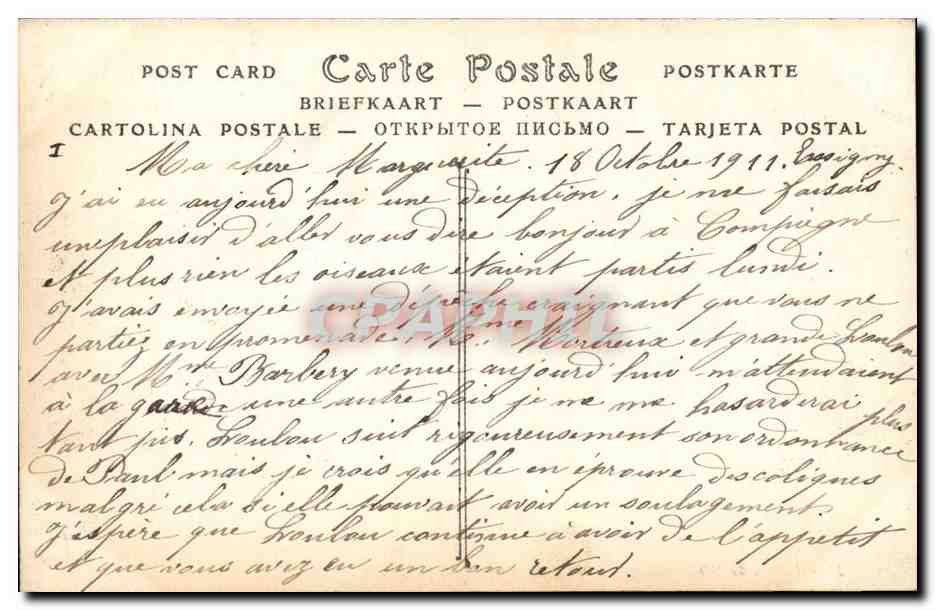 POST CARD Carte Postale POSTKARTE
BRIEFKAART — POSTKAART
CARTOLINA POSTALE — ОТКРЫТОЕ ПИСЬМО — TARJETA POSTAL
I
Ma chère Marguerite. 18 Octobre 1911.
J'ai eu aujourd'hui une déception, je me faisais
une plaisir d'aller vous dire bonjour à Compiègne
et plus rien les oiseaux étaient partis lundi.
J'avais envoyée une dépêche craignant que vous ne
partiez en promenade, Mme et grande Loulou
avec Mme Barbery venue aujourd'hui m'attendaient
à la une autre fois je ne me hasarderai plus
tant pis. Loulou suit rigoureusement son ordonnance
de Paul mais je crois qu'elle en éprouve des coliques
malgré cela si elle pouvait avoir un soulagement.
J'espère que Loulou continue à avoir de l'appetit
et que vous avez eu un bon retour.
CPAPHIL